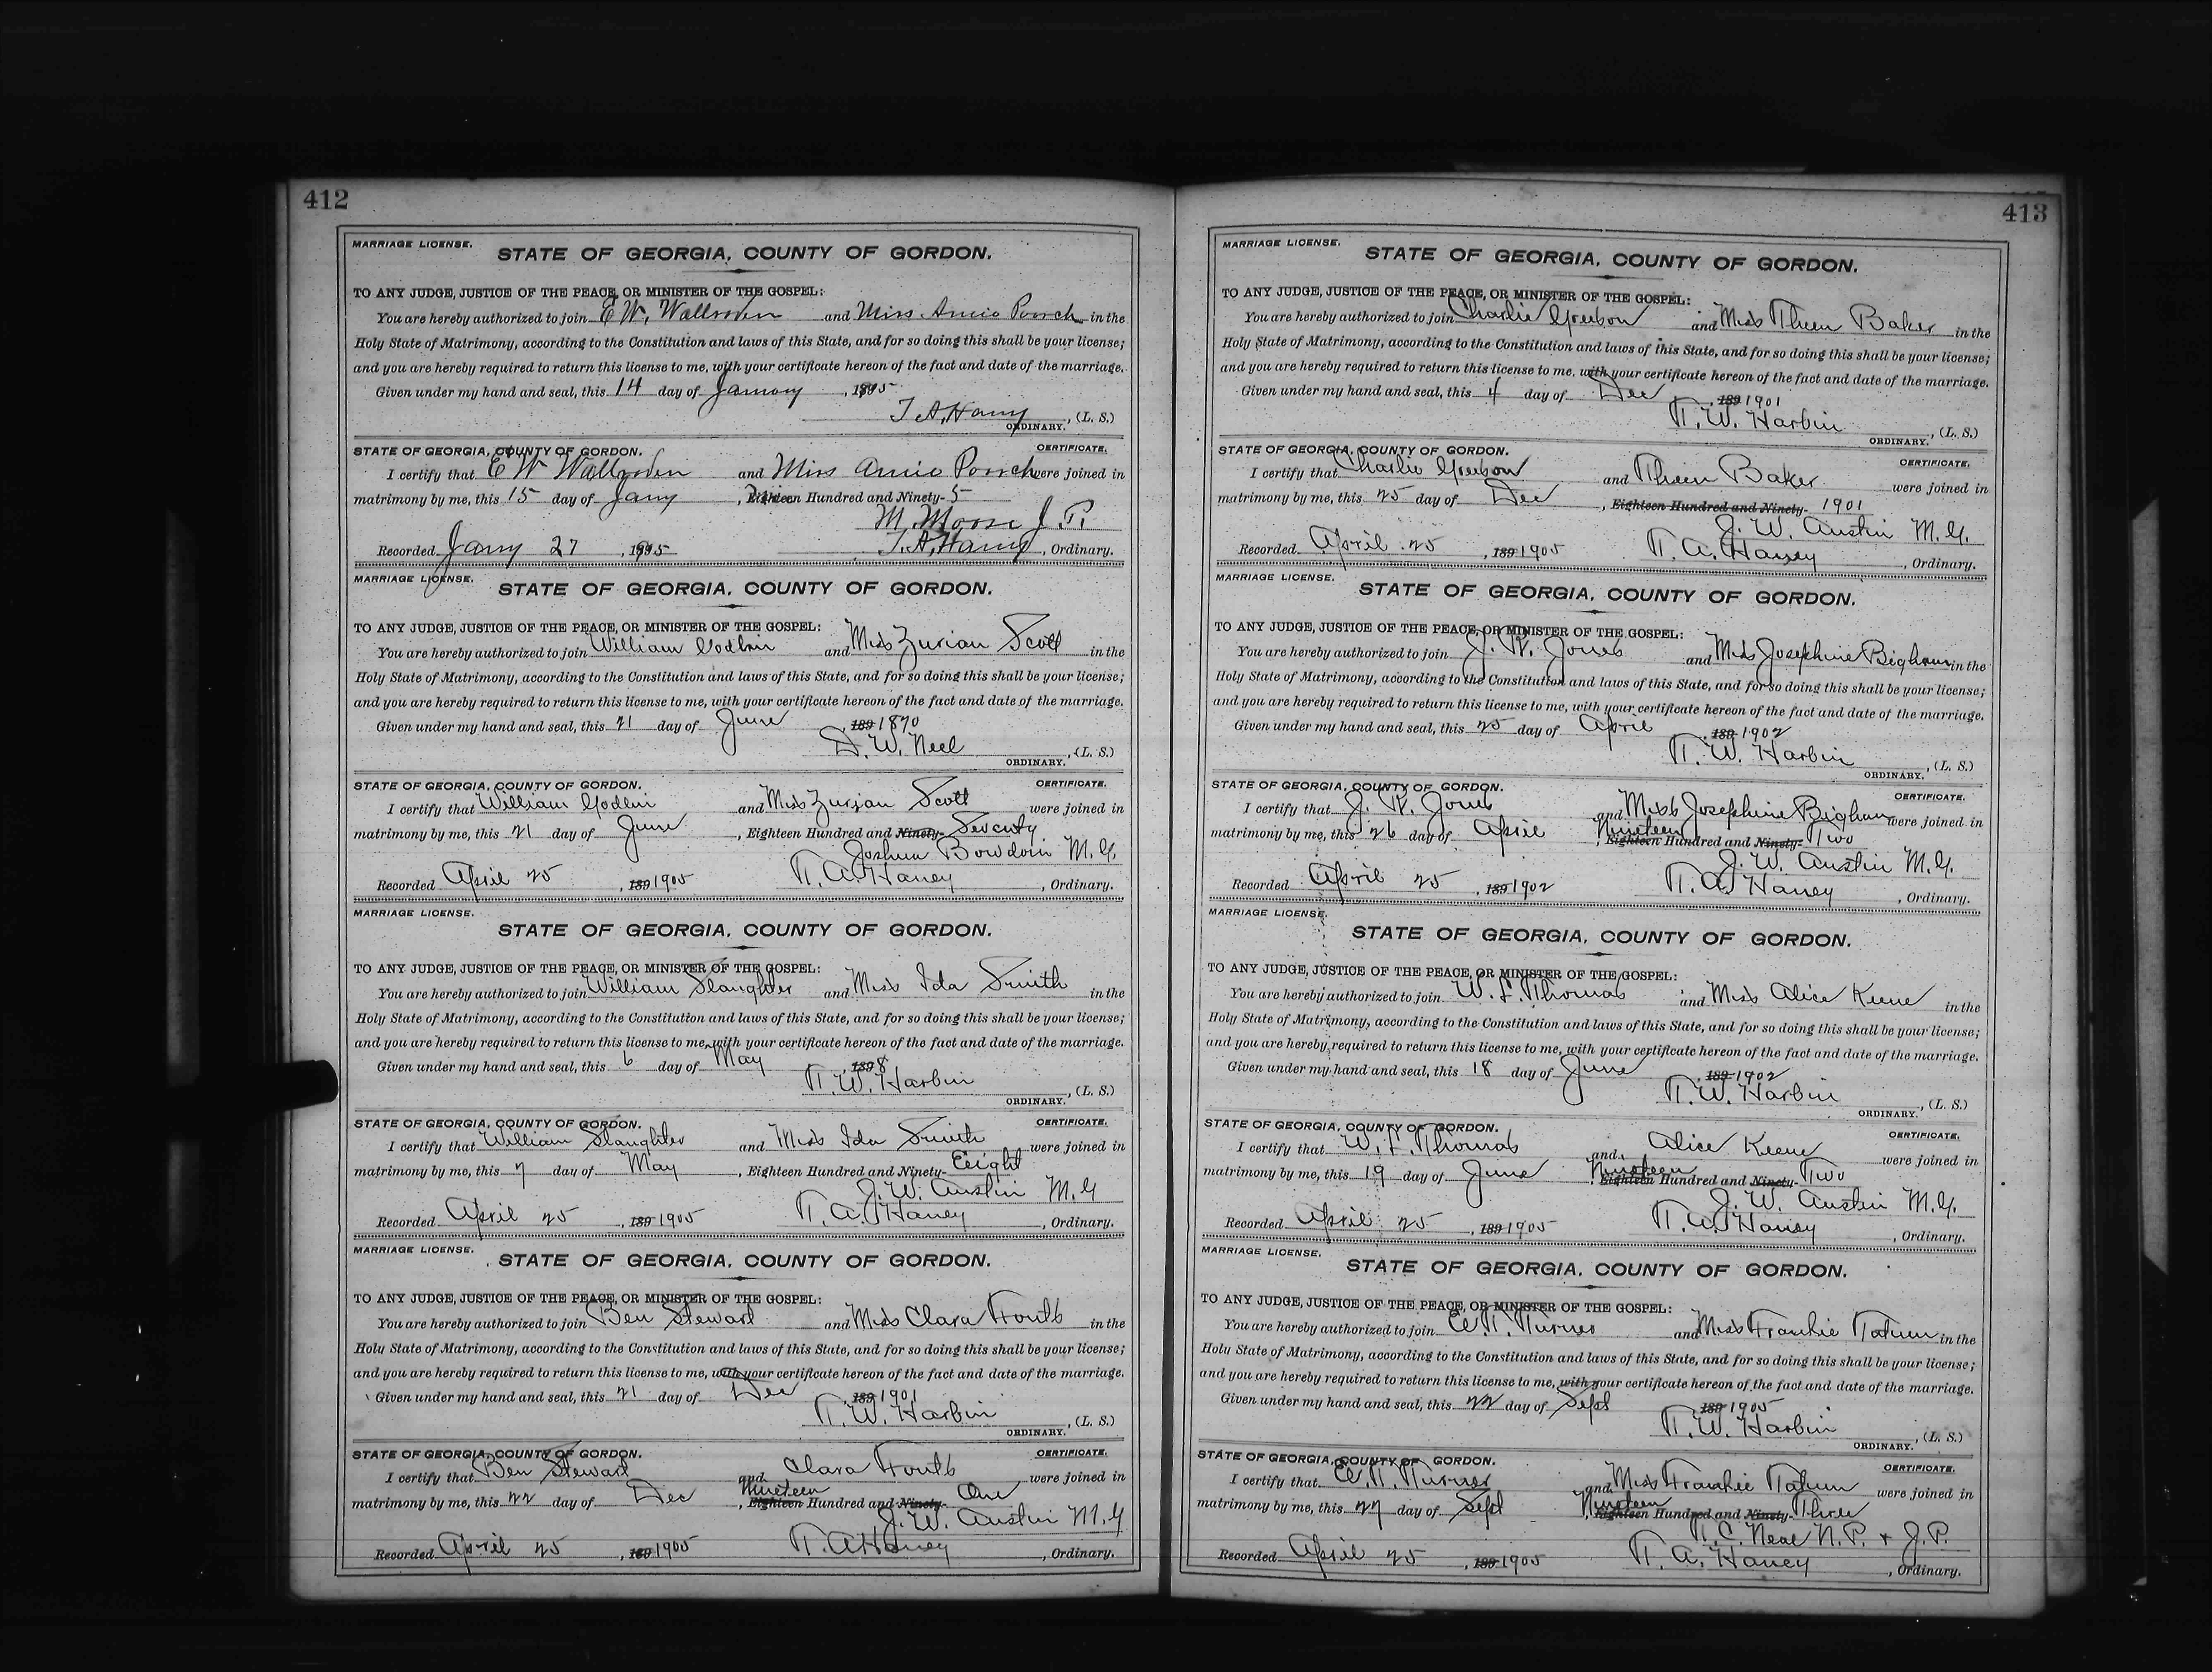 412
MARRIAGE LICENSE.
STATE OF GEORGIA, COUNTY OF GORDON.
TO ANY JUDGE, JUSTICE OF THE PEACE, OR MINISTER OF THE GOSPEL:
You are hereby authorized to join E W. and Miss in the
Holy State of Matrimony, according to the Constitution and laws of this State, and for so doing this shall be your license;
and you are hereby required to return this license to me, with your certificate hereon of the fact and date of the marriage.
Given under my hand and seal, this 14 day of January, 1905
T. A. Haney, (L. S.)
ORDINARY.
STATE OF GEORGIA, COUNTY OF GORDON. CERTIFICATE.
I certify that E W and Miss were joined in
matrimony by me, this 15 day of Jany, Hundred and Ninety-5
M. Moose J. P.
Recorded Jany 27, 1905 T. A. Haney, Ordinary.
MARRIAGE LICENSE.
STATE OF GEORGIA, COUNTY OF GORDON.
TO ANY JUDGE, JUSTICE OF THE PEACE, OR MINISTER OF THE GOSPEL:
You are hereby authorized to join William and Miss Scott in the
Holy State of Matrimony, according to the Constitution and laws of this State, and for so doing this shall be your license;
and you are hereby required to return this license to me, with your certificate hereon of the fact and date of the marriage.
Given under my hand and seal, this 21 day of June, 189 1870
D. W. Neel, (L. S.)
ORDINARY.
STATE OF GEORGIA, COUNTY OF GORDON. CERTIFICATE.
I certify that William and Miss Scott were joined in
matrimony by me, this 21 day of June, Eighteen Hundred and Ninety- Seventy
Joshua Bowdoin M. G.
Recorded April 25, 189 1905 T. A. Haney, Ordinary.
MARRIAGE LICENSE.
STATE OF GEORGIA, COUNTY OF GORDON.
TO ANY JUDGE, JUSTICE OF THE PEACE, OR MINISTER OF THE GOSPEL:
You are hereby authorized to join William Slaughter and Miss Ida Smith in the
Holy State of Matrimony, according to the Constitution and laws of this State, and for so doing this shall be your license;
and you are hereby required to return this license to me, with your certificate hereon of the fact and date of the marriage.
Given under my hand and seal, this 6 day of May, 1898
T. W. Harbin, (L. S.)
ORDINARY.
STATE OF GEORGIA, COUNTY OF GORDON. CERTIFICATE.
I certify that William Slaughter and Miss Ida Smith were joined in
matrimony by me, this 7 day of May, Eighteen Hundred and Ninety- Eight
J. W. Austin M. G
Recorded April 25, 189 1905 T. A. Haney, Ordinary.
MARRIAGE LICENSE.
STATE OF GEORGIA, COUNTY OF GORDON.
TO ANY JUDGE, JUSTICE OF THE PEACE, OR MINISTER OF THE GOSPEL:
You are hereby authorized to join Ben Stewart and Miss Clara Fouts in the
Holy State of Matrimony, according to the Constitution and laws of this State, and for so doing this shall be your license;
and you are hereby required to return this license to me, with your certificate hereon of the fact and date of the marriage.
Given under my hand and seal, this 21 day of Dec, 189 1901
T. W. Harbin, (L. S.)
ORDINARY.
STATE OF GEORGIA, COUNTY OF GORDON. CERTIFICATE.
I certify that Ben Stewart and Clara Fouts were joined in
matrimony by me, this 22 day of Dec, Eighteen Nineteen Hundred and Ninety- One
J. W. Austin M. G
Recorded April 25, 189 1905 T. A Haney, Ordinary.
413
MARRIAGE LICENSE.
STATE OF GEORGIA, COUNTY OF GORDON.
TO ANY JUDGE, JUSTICE OF THE PEACE, OR MINISTER OF THE GOSPEL:
You are hereby authorized to join Charlie and Miss Baker in the
Holy State of Matrimony, according to the Constitution and laws of this State, and for so doing this shall be your license;
and you are hereby required to return this license to me, with your certificate hereon of the fact and date of the marriage.
Given under my hand and seal, this 4 day of Dec, 189 1901
T. W. Harbin, (L. S.)
ORDINARY.
STATE OF GEORGIA, COUNTY OF GORDON. CERTIFICATE.
I certify that Charlie and Baker were joined in
matrimony by me, this 25 day of Dec, Eighteen Hundred and Ninety- 1901
J. W. Austin M. G.
Recorded April 25, 189 1905 T. A. Haney, Ordinary.
MARRIAGE LICENSE.
STATE OF GEORGIA, COUNTY OF GORDON.
TO ANY JUDGE, JUSTICE OF THE PEACE, OR MINISTER OF THE GOSPEL:
You are hereby authorized to join J. R. Jones and Miss Josephine Bigham in the
Holy State of Matrimony, according to the Constitution and laws of this State, and for so doing this shall be your license;
and you are hereby required to return this license to me, with your certificate hereon of the fact and date of the marriage.
Given under my hand and seal, this 25 day of April, 189 1902
T. W. Harbin, (L. S.)
ORDINARY.
STATE OF GEORGIA, COUNTY OF GORDON. CERTIFICATE.
I certify that J. R. Jones and Miss Josephine Bigham were joined in
matrimony by me, this 26 day of April, Eighteen Nineteen Hundred and Ninety- Two
J. W. Austin M. G.
Recorded April 25, 189 1902 T. A. Haney, Ordinary.
MARRIAGE LICENSE.
STATE OF GEORGIA, COUNTY OF GORDON.
TO ANY JUDGE, JUSTICE OF THE PEACE, OR MINISTER OF THE GOSPEL:
You are hereby authorized to join W. L. Thomas and Miss Alice Keene in the
Holy State of Matrimony, according to the Constitution and laws of this State, and for so doing this shall be your license;
and you are hereby required to return this license to me, with your certificate hereon of the fact and date of the marriage.
Given under my hand and seal, this 18 day of June, 189 1902
T. W. Harbin, (L. S.)
ORDINARY.
STATE OF GEORGIA, COUNTY OF GORDON. CERTIFICATE.
I certify that W. L. Thomas and Alice Keene were joined in
matrimony by me, this 19 day of June, Eighteen Nineteen Hundred and Ninety- Two
J. W. Austin M. G.
Recorded April 25, 189 1905 T. A. Haney, Ordinary.
MARRIAGE LICENSE.
STATE OF GEORGIA, COUNTY OF GORDON.
TO ANY JUDGE, JUSTICE OF THE PEACE, OR MINISTER OF THE GOSPEL:
You are hereby authorized to join Turner and Miss Frankie Tatum in the
Holy State of Matrimony, according to the Constitution and laws of this State, and for so doing this shall be your license;
and you are hereby required to return this license to me, with your certificate hereon of the fact and date of the marriage.
Given under my hand and seal, this 22 day of Sept, 189 1905
T. W. Harbin, (L. S.)
ORDINARY.
STATE OF GEORGIA, COUNTY OF GORDON. CERTIFICATE.
I certify that Turner and Miss Frankie Tatum were joined in
matrimony by me, this 27 day of Sept, Eighteen Nineteen Hundred and Ninety- Three
Neal N. P. & J. P.
Recorded April 25, 189 1905 T. A. Haney, Ordinary.